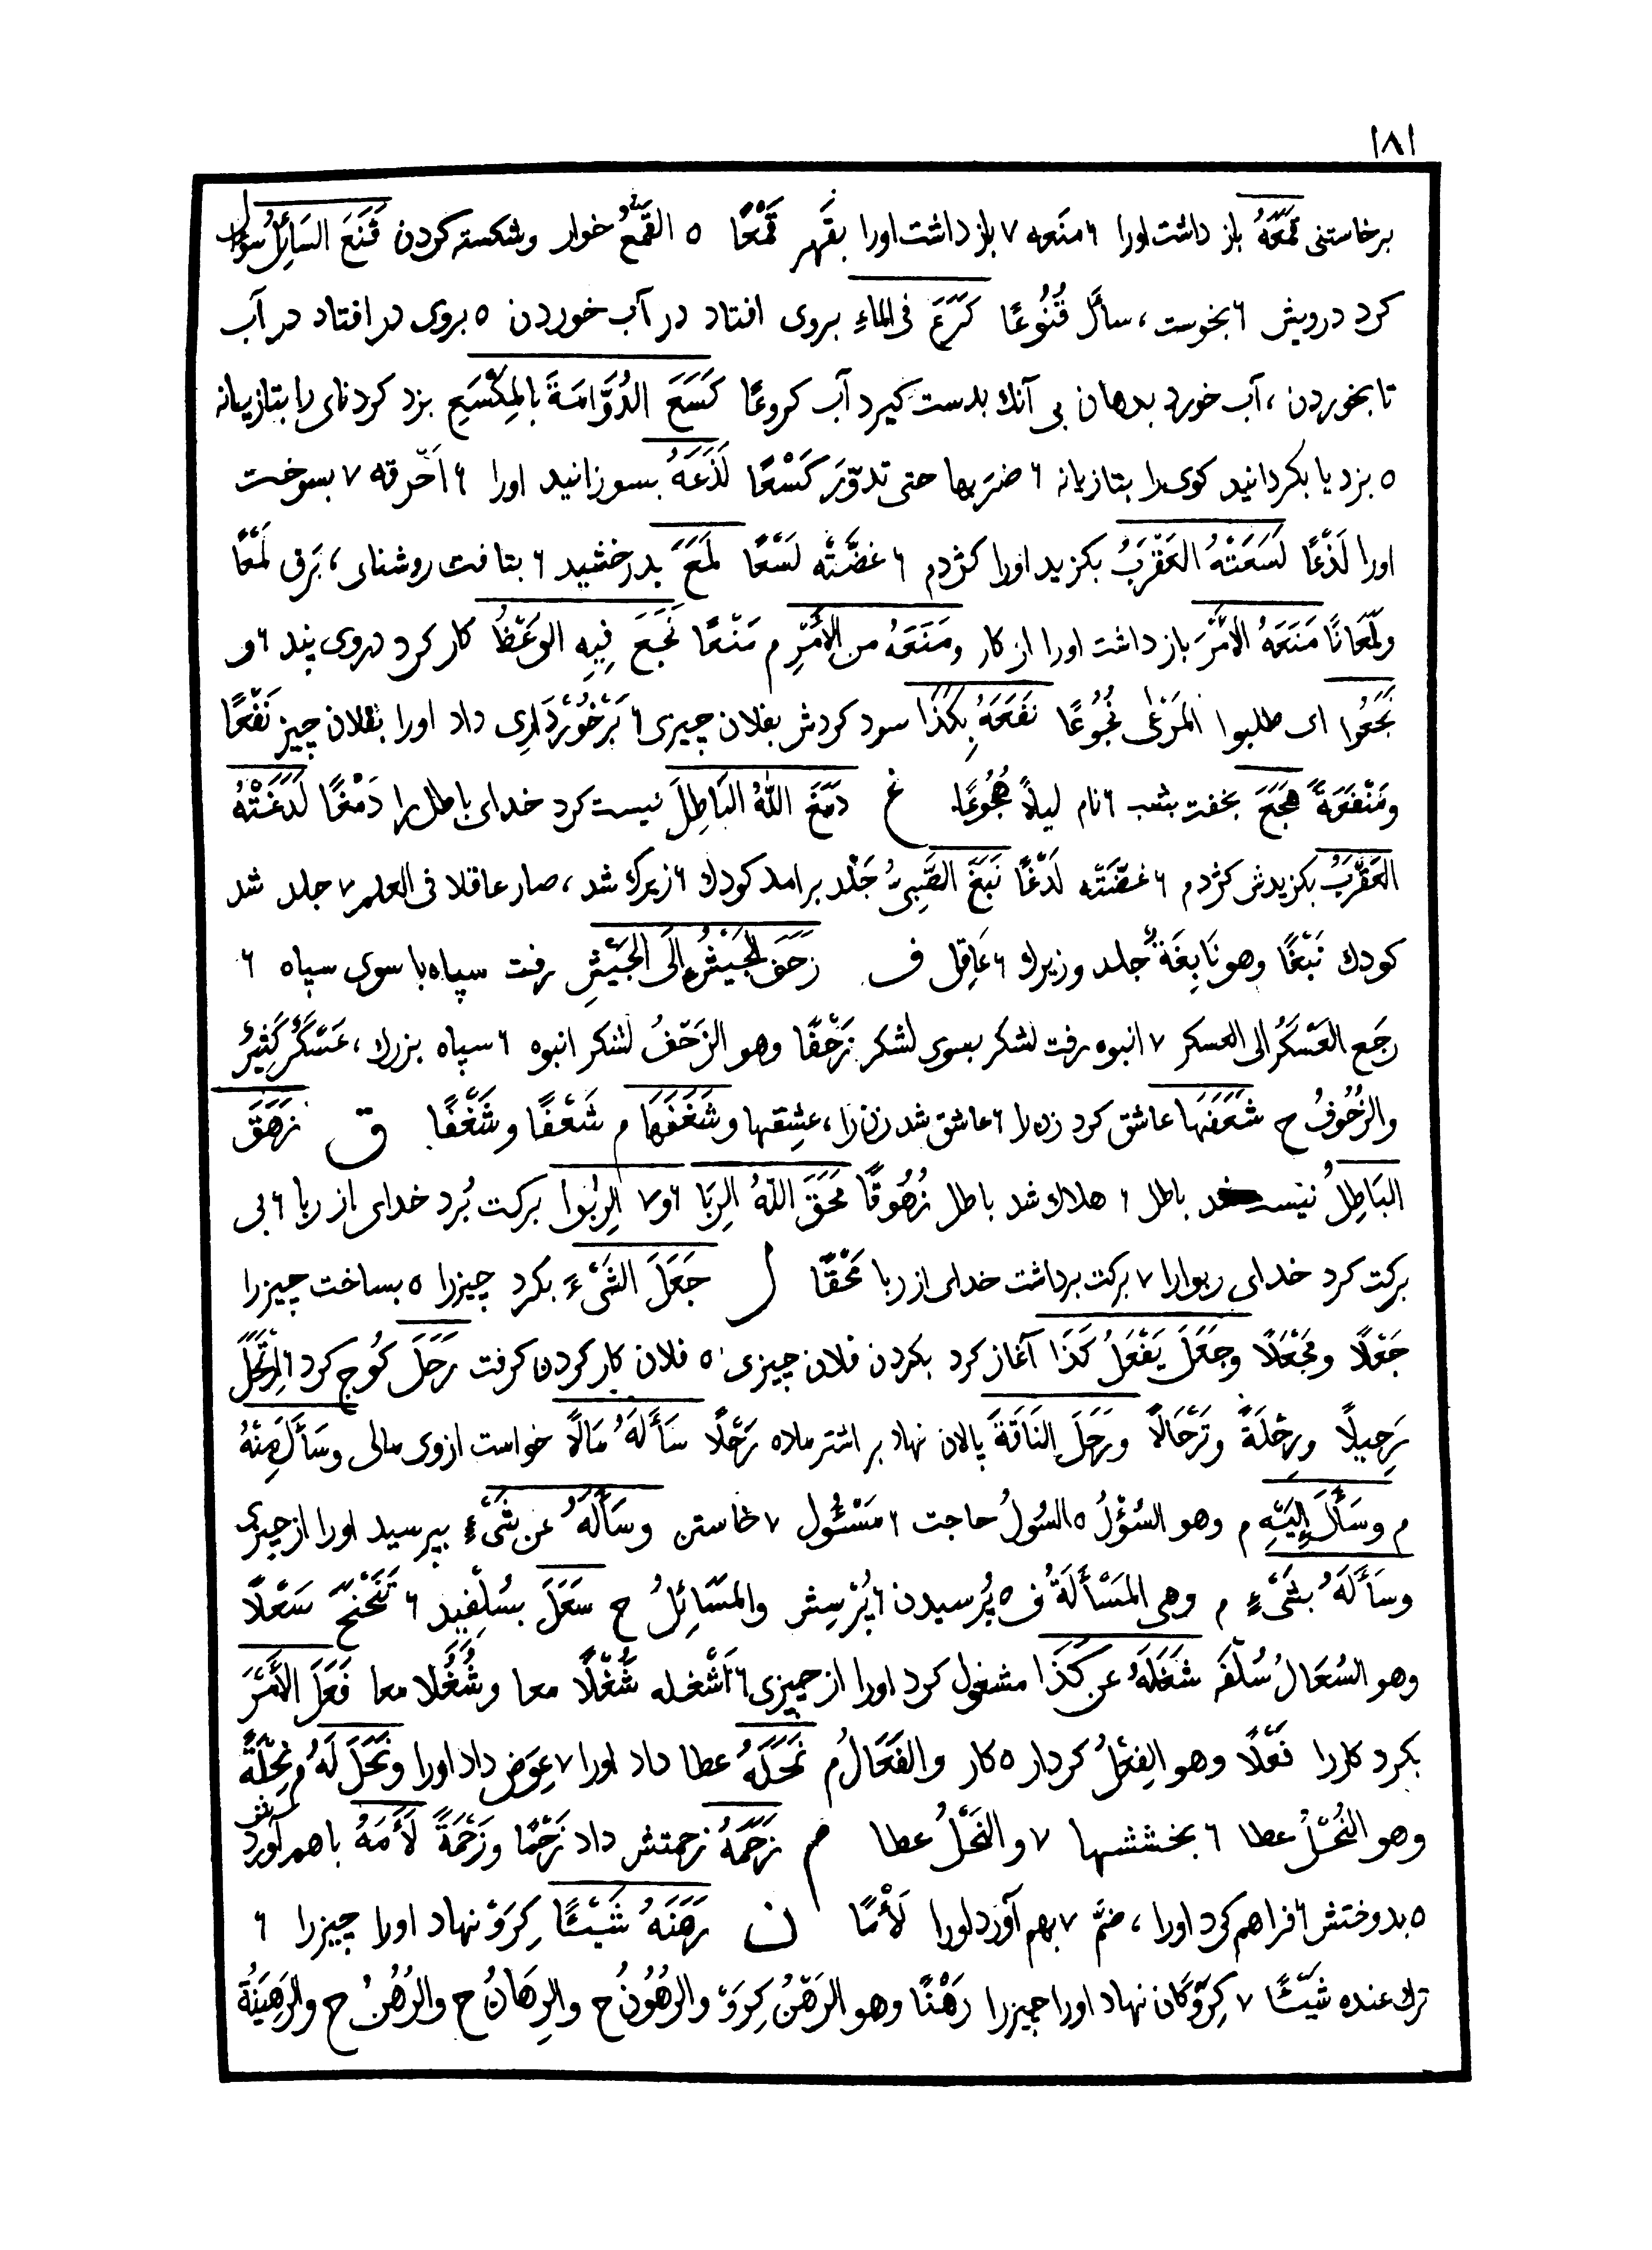 ۱۸۱
برخاستنی قَمَعَهُ باز داشت اورا ۶ منَعه ۷ باز داشت اورا بقَهر قَمْعًا ۵ القَمْعُ خوار وشکسته کردن قَنَعَ السَائِلُ سؤال
کرد درویش ۶ بخوست ، سأل قُنُوعًا کَرَعَ فی الماءِ بروی افتاد در آب خوردن ۵ بروی در افتاد در آب
تا بخوردن ، آب خورد بدهان بی آنك بدست کیرد آب کروعًا کَسَعَ الدُوَّامَةَ بالمِکْسَعِ بزد کردنای را بتازیانه
۵ بزد یا بکردانید کوی را بتازیانه ۶ ضرَبها حتی تدوّرَ کَسْعًا لَذَعَهُ بسوزانید اورا ۶ اَحْرقه ۷ بسوخت
اورا لَذْعًا لَسَعَتْهُ العَقْرَبُ بکزید اورا کژدم ۶ عَضَّتْه لَسْعًا لَمَعَ بدرخشید ۶ بتافت روشنای ، بَرق لَمْعًا
ولَمَعَانًا مَنَعَهُ الأَمْرَ باز داشت اورا از کار ومَنَعَهُ من الأَمْرِ م مَنْعًا نَجَعَ فِیهِ الوَعْظُ کار کرد دروی پند ۶ و
نَجَعُوا ای طلبوا المَرْعٰی نُجُوعًا نَفَعَهُ بِکَذَا سود کردش بفلان چیزی ۶ بَرْخُوْرْدَارِی داد اورا بفلان چیز نَفْعًا
ومَنْفَعَةً هَجَعَ بخفت بشب ۶ نام لیلاً هُجُوعًا غ دَمَغَ اللهُ البَاطِلَ نیست کرد خدای باطل را دَمْغًا لَدَغَتْهُ
العَقْرَبُ بکزیدش کژدم ۶ عَضَّتْه لَدْغًا نَبَغَ الصَّبِیُّ جَلْد برامد کودك ۶ زیرك شد ، صار عاقلا فی العلم ۷ جلد شد
کودك نَبْغًا وهو نَابِغَةٌ جلد وزیرك ۶ عَاقِل ف زَحَفَ الجَیْشُ إلَی الجَیْشِ رفت سپاه با سوی سپاه ۶
رجَع العَسْکَرُ الی العسکر ۷ انبوه رفت لشکر بسوی لشکر زَحْفًا وهو الزَحْفُ لشکر انبوه ۶ سپاه بزرك ، عَسْکَرٌ کَثِیرٌ
والزُحُوفُ ح شَعَفَهَا عاشق کرد زن را ۶ عاشق شد زن را ، عشِقها وشَغَفَهَا م شَعْفًا وشَغْفًا ق زَهَقَ
البَاطِلُ نیست شد باطل ۶ هلاك شد باطل زُهُوقًا مَحَقَ اللهُ الرِبَا ۶ و ۷ الرِبٰوا برکت بُرد خدای از ربا ۶ بی
برکت کرد خدای ربوارا ۷ برکت برداشت خدای از ربا مَحْقًا ل جَعَلَ الشَیْءَ بکرد چیزرا ۵ بساخت چیزرا
جَعْلًا ومَجْعَلًا وجَعَلَ یَفْعَلُ کَذَا آغاز کرد بکردن فلان چیزی ۵ فلان کار کردن کرفت رَحَلَ کُوچ کرد ۶ اِرْتَحَلَ
رَحِیلًا ورِحْلَةً وتَرْحَالًا ورَحَلَ النَاقَةَ پالان نهاد بر اشتر ماده رَحْلًا سَأَلَهُ مَالًا خواست ازوی مالی وسَأَلَ مِنْهُ
م وسَأَلَ إلَیْهِ م وهو السُؤْلُ ۵ السُولُ حاجت ۶ مَسْئُول ۷ خاستن وسَأَلَهُ عن شَیْءٍ بپرسید اورا از چیزی
وسَأَلَهُ بشَیْءٍ م وهی المَسْأَلَةُ ف ۵ پُرسیدن ۶ پُرْسِش والمَسَائِلُ ح سَعَلَ بسُلْفِید ۶ تَنَحْنَحَ سَعْلًا
وهو السُعَالُ سُلْفَه شَغَلَهُ عن کَذَا مشغول کرد اورا از چیزی ۶ اَشْغله شُغْلًا معا وشُغُلا معا فَعَلَ الأَمْرَ
بکرد کاررا فَعْلًا وهو الفِعْلُ کردار ۵ کار والفَعَالُ م نَحَلَهُ عطا داد اورا ۷ عِوَض داد اورا ونَحَلَ لَهُ م نِحْلَةً
وهو النُحْلُ عطا ۶ بخششها ۷ والنَحْلُ عطا م زَحَمَهُ زحمتش داد زَحْمًا وزَحْمَةً لَأَمَهُ باهم آورد
۵ بدوختش ۶ فراهم کرد اورا ، ضَمّ ۷ بهم آورد اورا لَأْمًا ن رَهَنَهُ شَیْئًا کِرَوْ نهاد اورا چیزرا ۶
ترك عنده شَیْئًا ۷ کِرَوْکان نهاد اورا چیزرا رَهْنًا وهو الرَهْنُ کِرَوْ والرُهُونُ ح والرِهَانُ ح والرُهُنُ ح والرَهِینَةُ